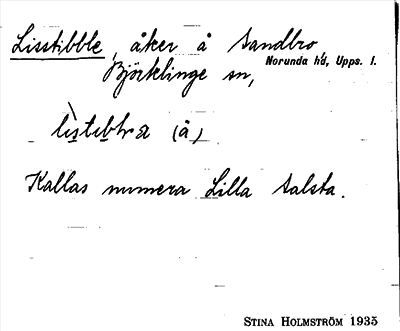 Lisstibble, åker å Sandbro
Norunda hd, Upps. l.
Björklinge sn,
(å)
Kallas numera Lilla Salsta.
STINA HOLMSTRÖM 1935